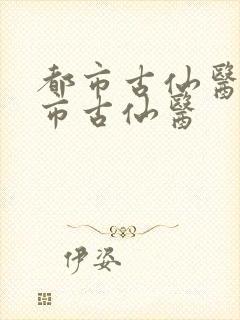 都市古仙醫
市古仙醫
伊姿